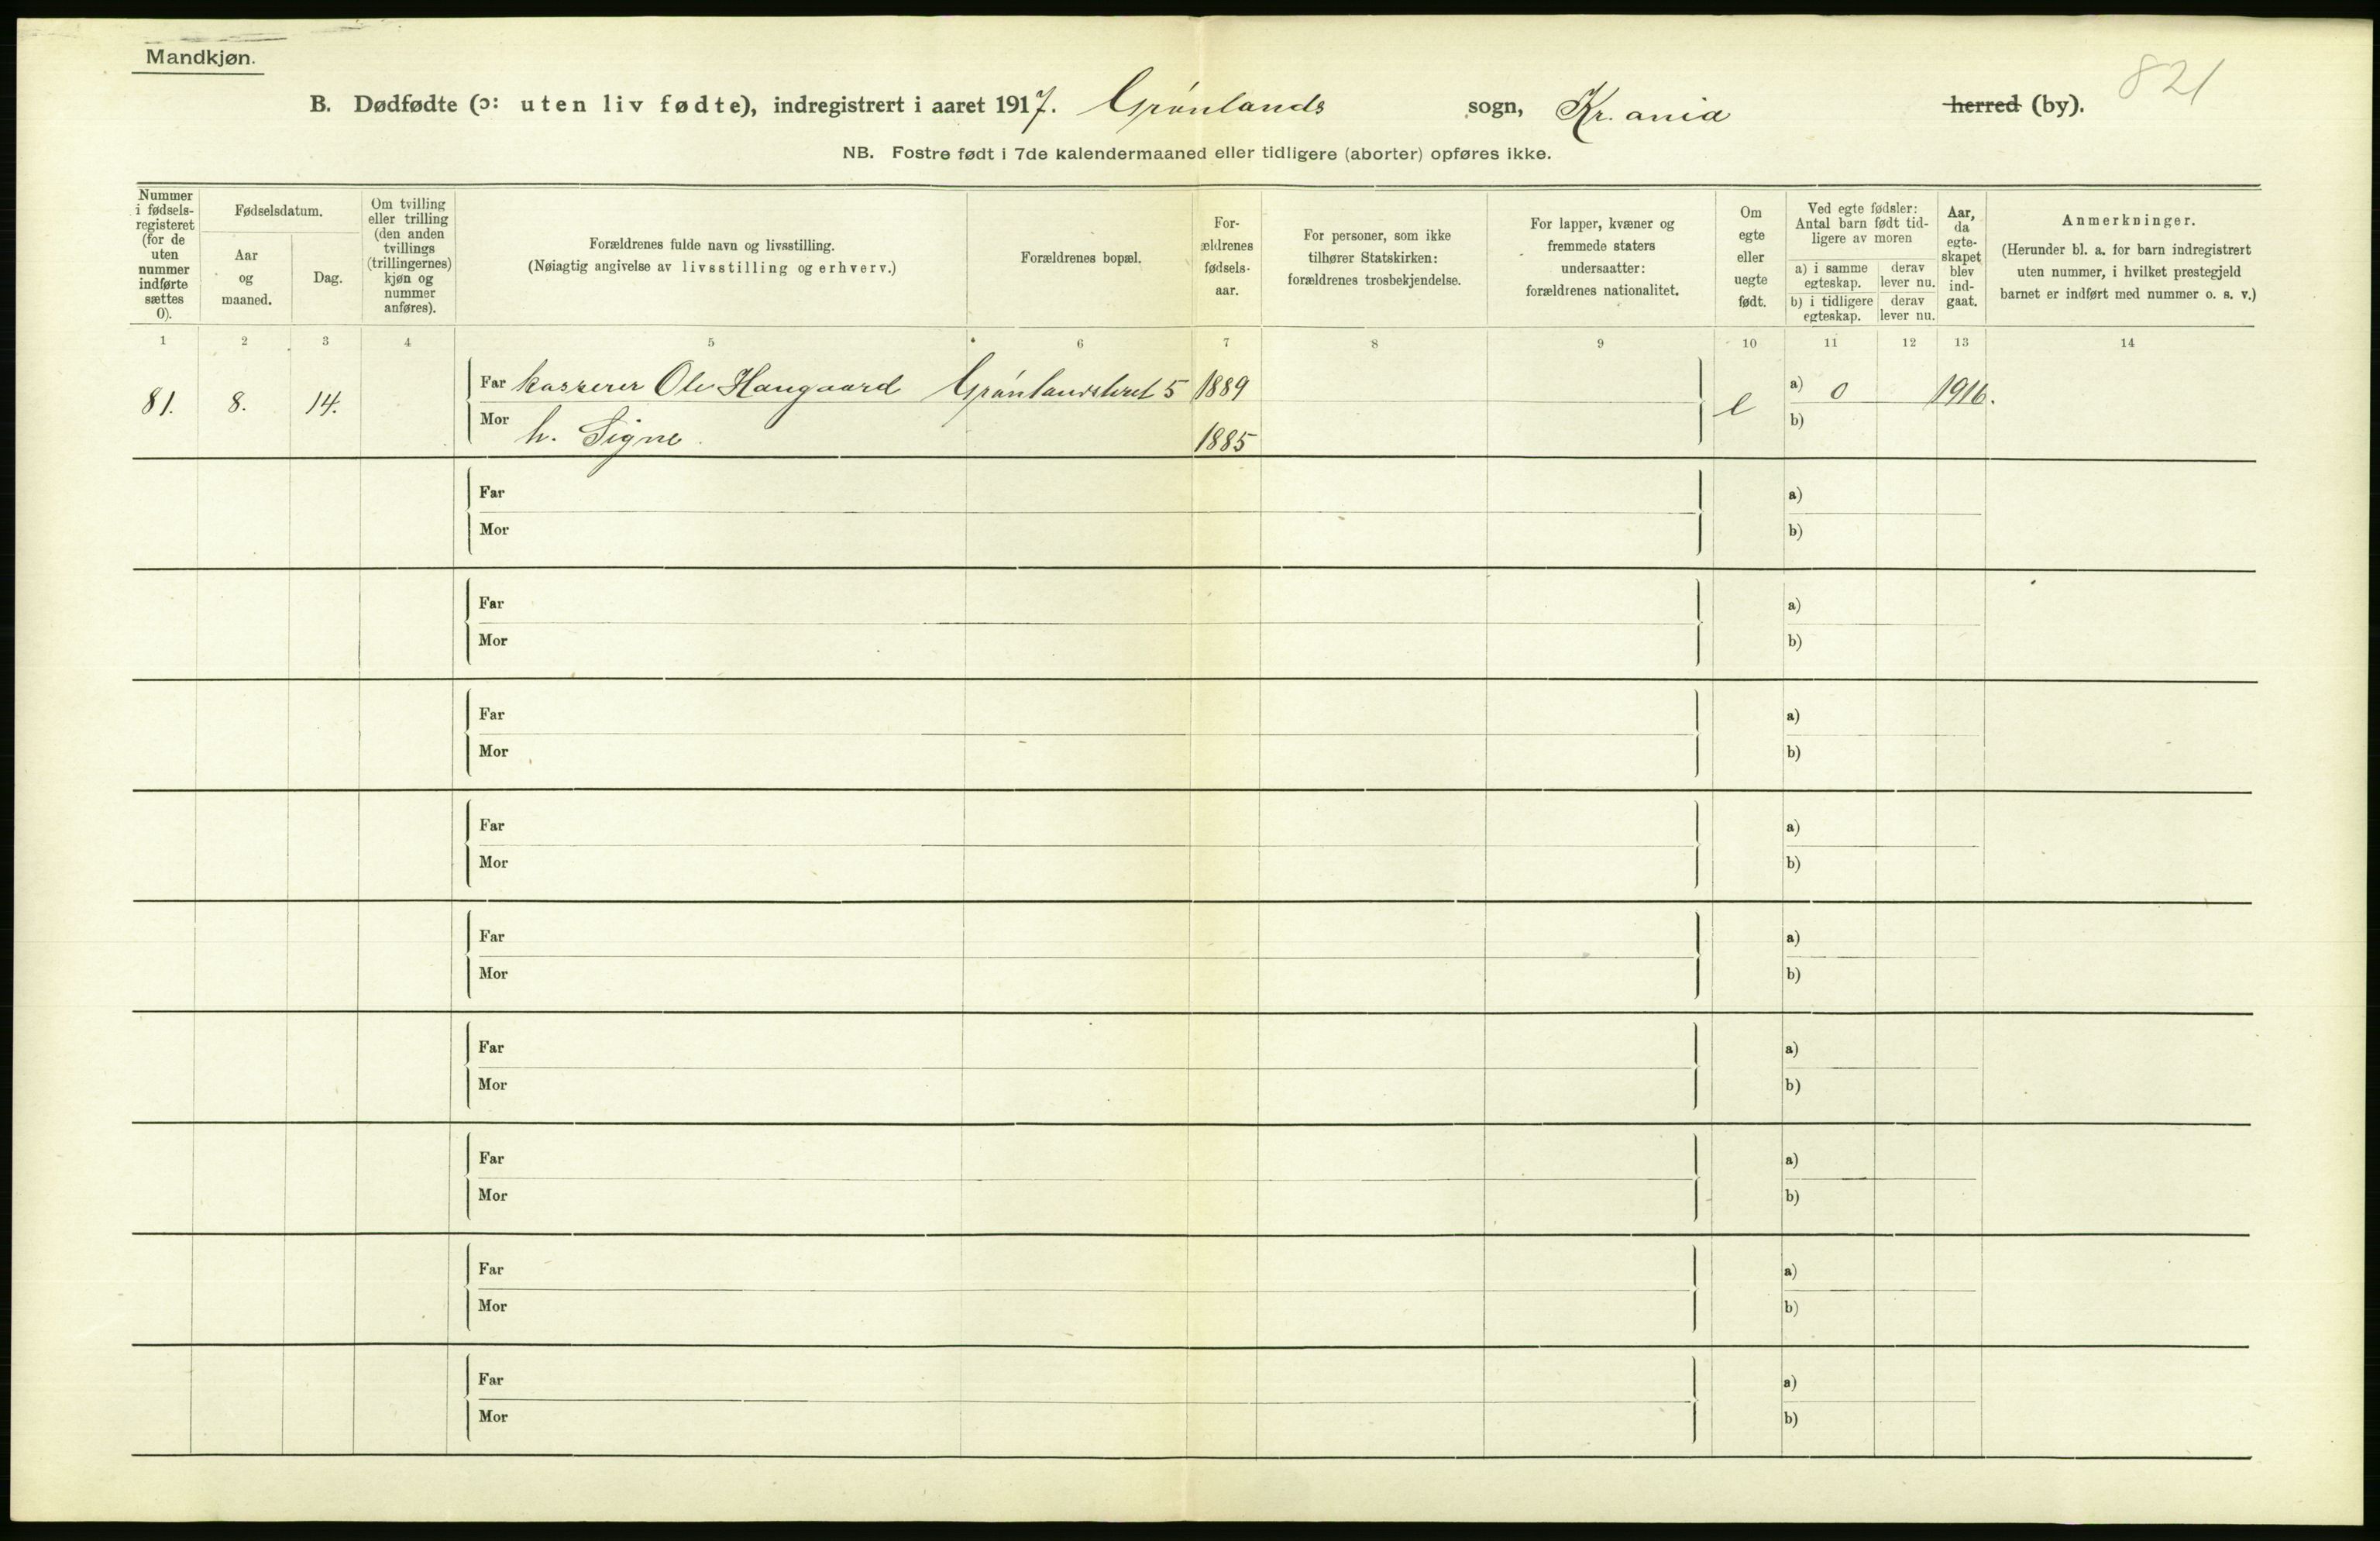 Mandkjøn.
821
B. Dødfødte (ɔ: uten liv fødte), indregistrert i aaret 1917. Grønlands sogn, Kr.ania herred (by).
NB. Fostre født i 7de kalendermaaned eller tidligere (aborter) opføres ikke.
Nummer
i fødsels-
registeret
(for de
uten
nummer
indførte
sættes
0).
Fødselsdatum.
Aar
og
maaned.
Dag.
Om tvilling
eller trilling
(den anden
tvillings
(trillingernes)
kjøn og
nummer
anføres).
Forældrenes fulde navn og livsstilling.
(Nøiagtig angivelse av livsstilling og erhverv.)
Forældrenes bopæl.
For-
ældrenes
fødsels-
aar.
For personer, som ikke
tilhører Statskirken:
forældrenes trosbekjendelse.
For lapper, kvæner og
fremmede staters
undersaatter:
forældrenes nationalitet.
Om
egte
eller
uegte
født.
Ved egte fødsler:
Antal barn født tid-
ligere av moren
a) i samme
egteskap.
derav
lever nu.
b) i tidligere
egteskap.
derav
lever nu.
Aar,
da
egte-
skapet
blev
ind-
gaat.
Anmerkninger.
(Herunder bl. a. for barn indregistrert
uten nummer, i hvilket prestegjeld
barnet er indført med nummer o. s. v.)
1 2 3 4 5 6 7 8 9 10 11 12 13 14
81. 8. 14. Far kasserer Ole Haugaard Grønlandsleret 5 1889 e a) 0 1916.
Mor h. Signe. 1885 b)
Far a)
Mor b)
Far a)
Mor b)
Far a)
Mor b)
Far a)
Mor b)
Far a)
Mor b)
Far a)
Mor b)
Far a)
Mor b)
Far a)
Mor b)
Far a)
Mor b)